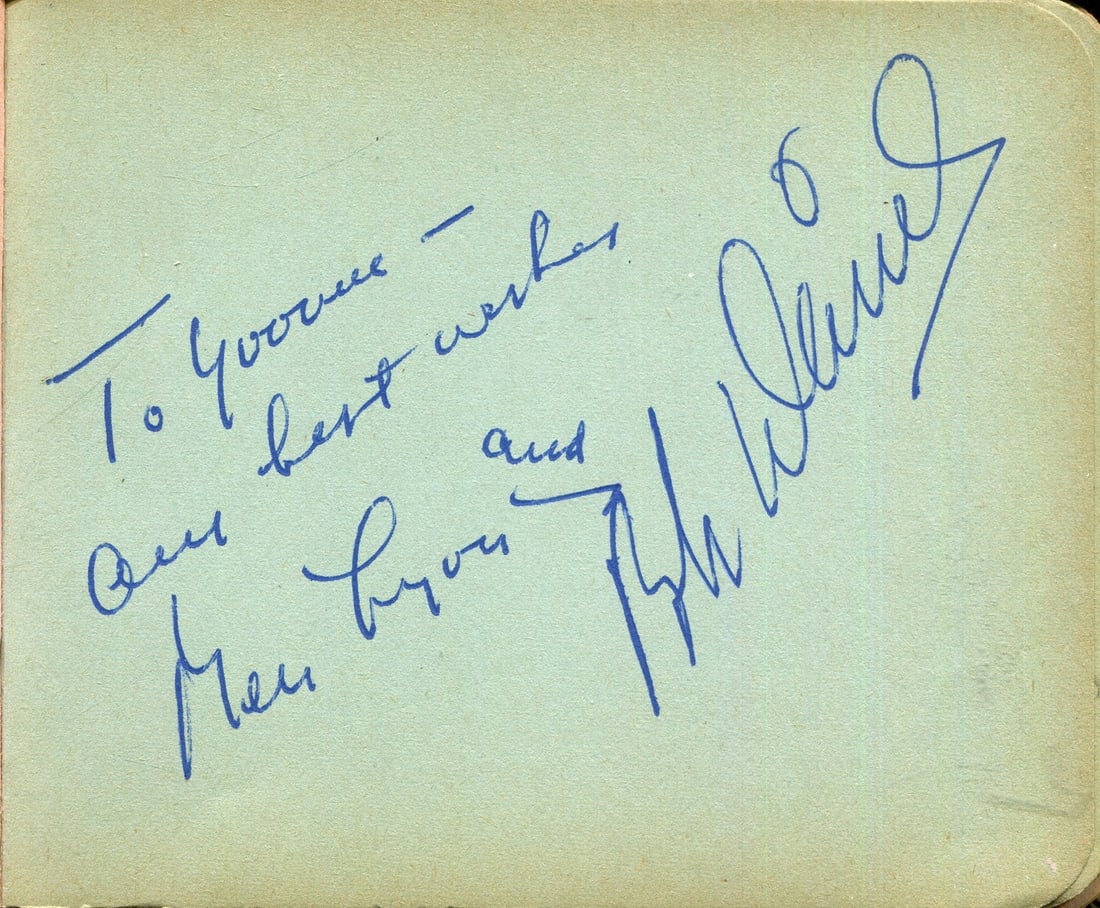 To Yvonne -
Our best wishes
Ben Lyon and
Bebe Daniels